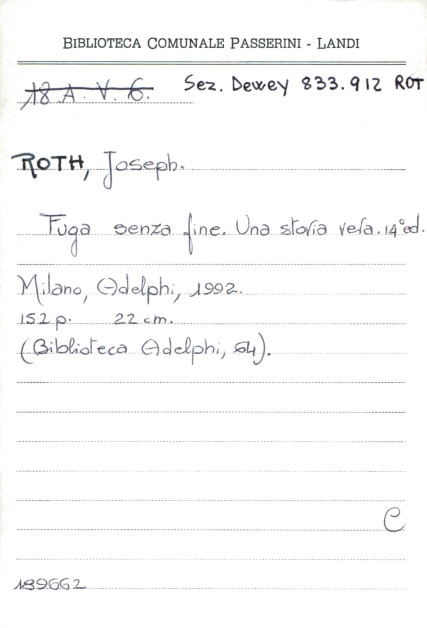 BIBLIOTECA COMUNALE PASSERINI - LANDI
18 A. V. 6. Sez. Dewey 833.912 ROT
ROTH, Joseph.
Fuga senza fine. Una storia vera. 14° ed.
Milano, Adelphi, 1992.
152 p. 22 cm.
(Biblioteca Adelphi, 64).
C
189662